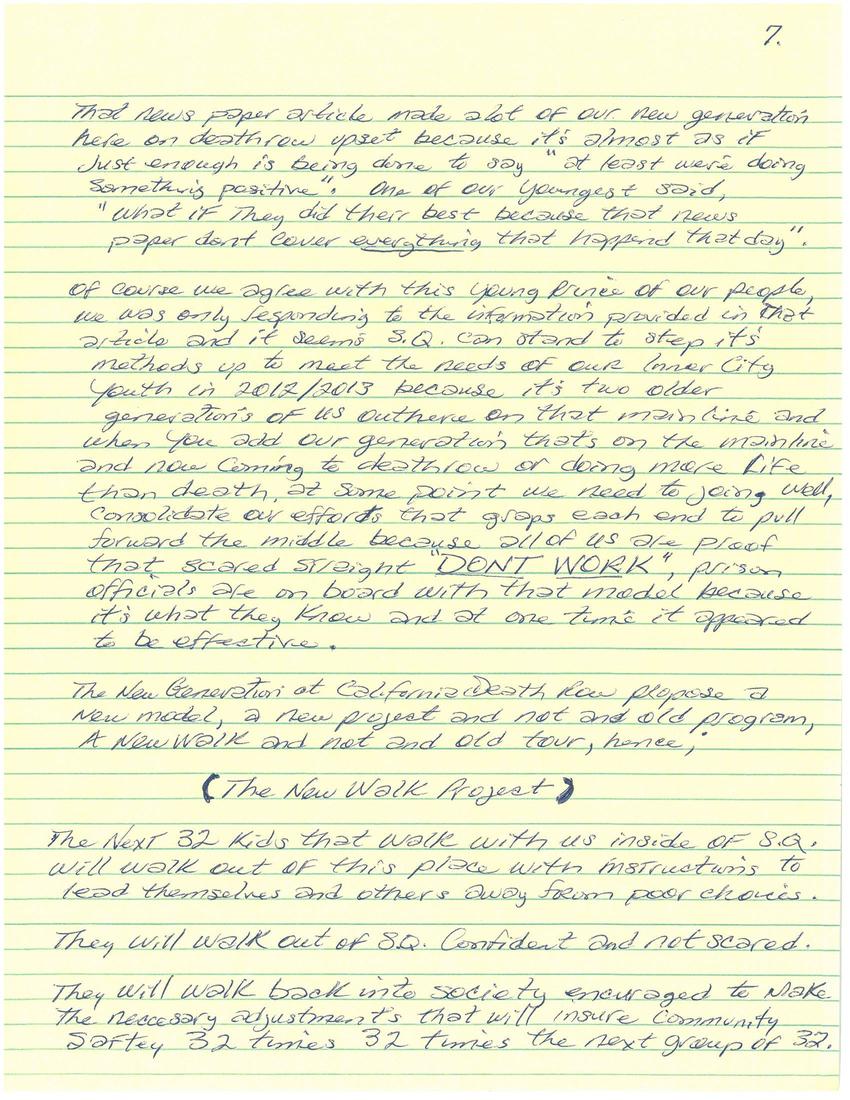 7.
That news paper article made alot of our new generation
here on deathrow upset because it's almost as if
Just enough is being done to say "at least we're doing
Something positive". One of our youngest said,
"what if They did their best because that news
paper dont cover everything that happend that day".
Of course we agree with this young Prince of our people,
we was only responding to the information provided in That
article and it seems S.Q. can stand to step it's
methods up to meet the needs of our Inner City
Youth in 2012/2013 because it's two older
generation's of us outhere on that mainline and
when you add our generation that's on the mainline
and now coming to deathrow or doing more Life
than death, at some point we need to joing well,
Consolidate our efforts that graps each end to pull
forward the middle because all of us are proof
that scared straight "DONT WORK", prison
officials are on board with that model because
it's what they know and at one time it appeared
to be effective.
The New Generation at California Death Row propose a
New model, a new project and not and old program,
A New Walk and not and old tour, hence;
(The New Walk Project)
The Next 32 Kids that walk with us inside of S.Q.
will walk out of this place with instructions to
lead themselves and others away from poor choices.
They will walk out of S.Q. Confident and not scared.
They will walk back into society encuraged to Make
the neccesary adjustment's that will insure Community
Saftey 32 times 32 times the next group of 32.